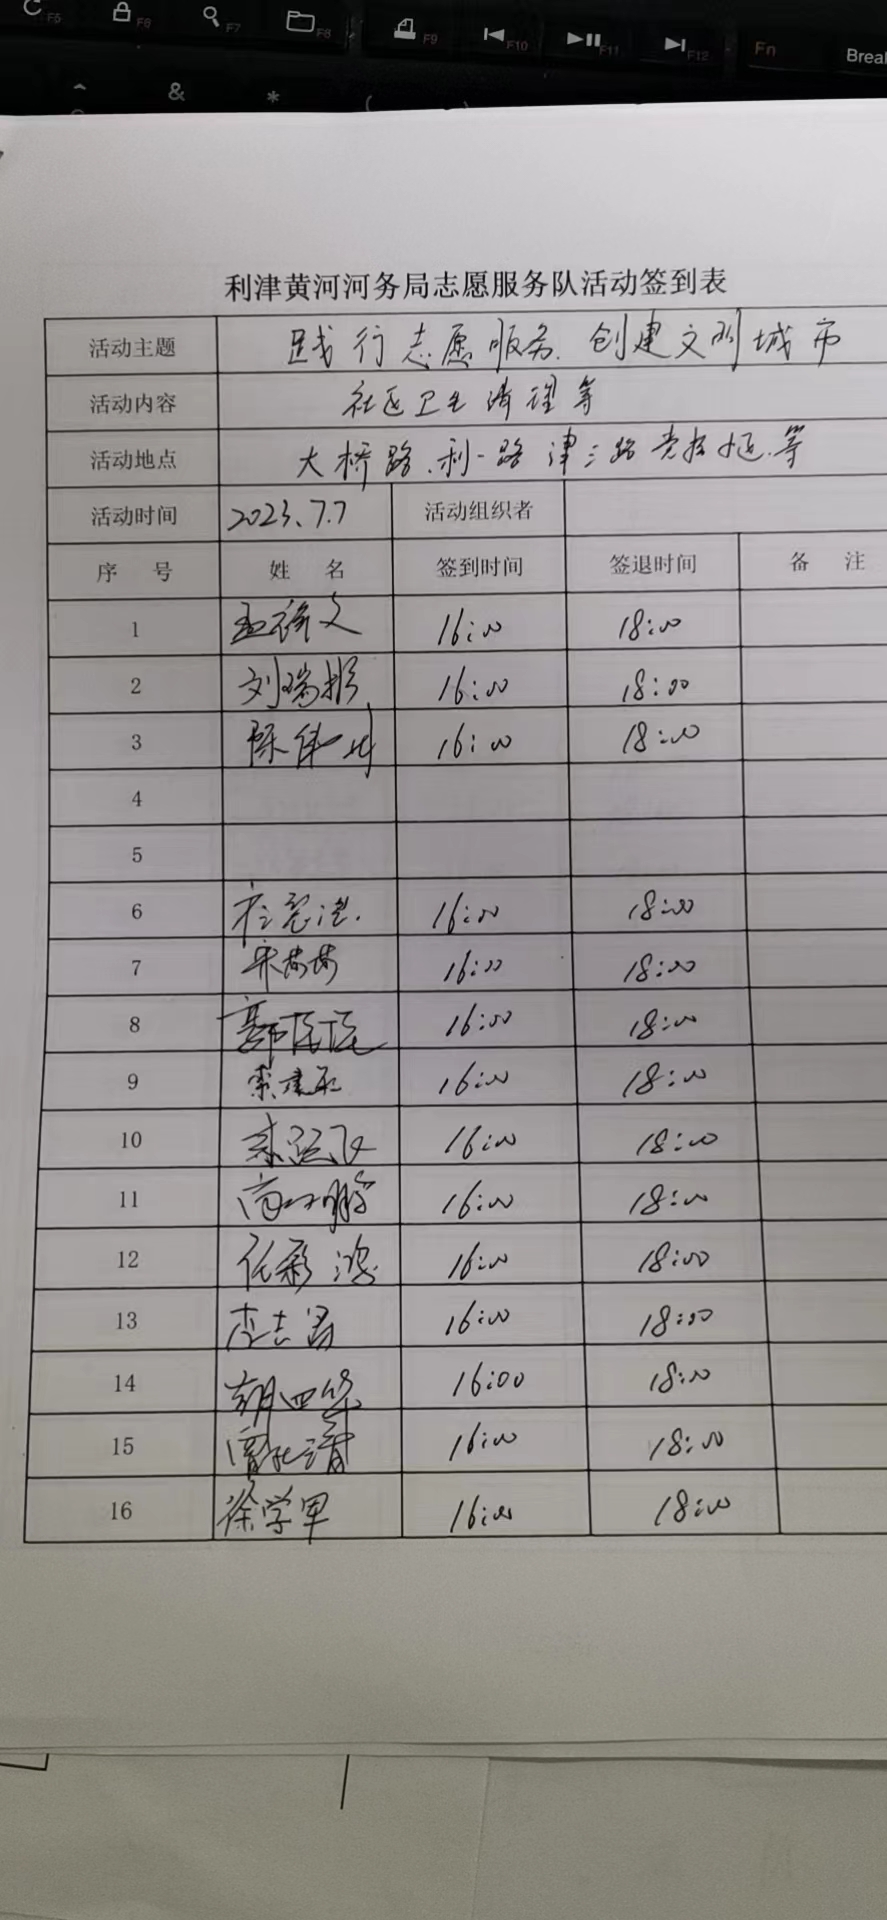 F5 F6 F7 F8 F9 F10 F11 F12 Fn Break
^ & * ( )
利津黄河河务局志愿服务队活动签到表
活动主题 践行志愿服务、创建文明城市
活动内容 社区卫生清理等
活动地点 大桥路、利一路 津三路 等
活动时间 2023.7.7 活动组织者
序 号 姓 名 签到时间 签退时间 备 注
1 16:00 18:00
2 刘瑞彬 16:00 18:00
3 陈伟 16:00 18:00
4
5
6 16:00 18:00
7 宋茜茜 16:00 18:00
8 16:00 18:00
9 16:00 18:00
10 16:00 18:00
11 16:00 18:00
12 任彩鸿 16:00 18:00
13 李志勇 16:00 18:00
14 胡四华 16:00 18:00
15 16:00 18:00
16 徐学军 16:00 18:00